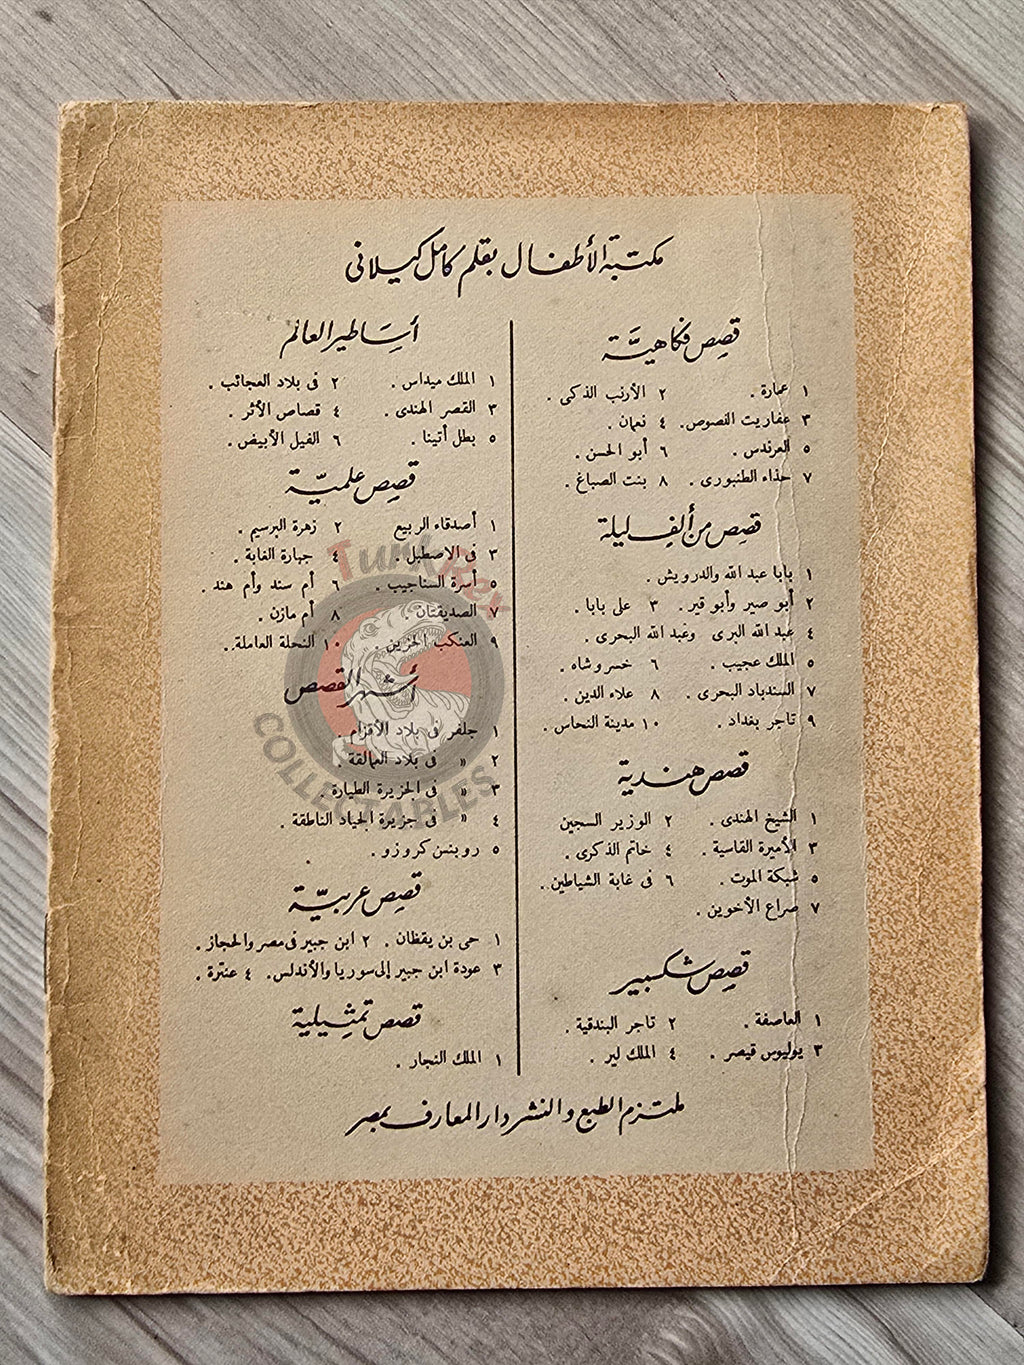 مكتبة الأطفال بقلم كامل كيلانى
قصص فكاهيَّة
١ عمارة . ٢ الأرنب الذكى .
٣ عفاريت اللصوص . ٤ نعمان .
٥ العرندس . ٦ أبو الحسن .
٧ حذاء الطنبورى . ٨ بنت الصباغ .
قصص من ألف ليلة
١ بابا عبد الله والدرويش .
٢ أبو صير وأبو قير . ٣ على بابا .
٤ عبد الله البرى وعبد الله البحرى .
٥ الملك عجيب . ٦ خسروشاه .
٧ السندباد البحرى . ٨ علاء الدين .
٩ تاجر بغداد . ١٠ مدينة النحاس .
قصص هندية
١ الشيخ الهندى . ٢ الوزير السجين
٣ الأميرة القاسية . ٤ خاتم الذكرى .
٥ شبكة الموت . ٦ فى غابة الشياطين .
٧ صراع الأخوين .
قصص شكسبير
١ العاصفة . ٢ تاجر البندقية .
٣ يوليوس قيصر . ٤ الملك لير .
أسَاطير العالم
١ الملك ميداس . ٢ فى بلاد العجائب .
٣ القصر الهندى . ٤ قصاص الأثر .
٥ بطل أتينا . ٦ الفيل الأبيض .
قصص علميّة
١ أصدقاء الربيع ٢ زهرة البرسيم .
٣ فى الاصطبل . ٤ جبارة الغابة .
٥ أسرة السناجيب . ٦ أم سند وأم هند .
٧ الصديقتان ٨ أم مازن .
٩ العنكب الحزين . ١٠ النحلة العاملة .
أشهر القصص
١ جلفر فى بلاد الأقزام .
٢ « فى بلاد العمالقة .
٣ « فى الجزيرة الطيارة .
٤ « فى جزيرة الجياد الناطقة .
٥ روبنسن كروزو .
قصص عربيّة
١ حى بن يقظان . ٢ ابن جبير فى مصر والحجاز .
٣ عودة ابن جبير إلى سوريا والأندلس . ٤ عنترة .
قصص تمثيلية
١ الملك النجار .
ملتزم الطبع والنشر دار المعارف بمصر
TurkRex
COLLECTABLES